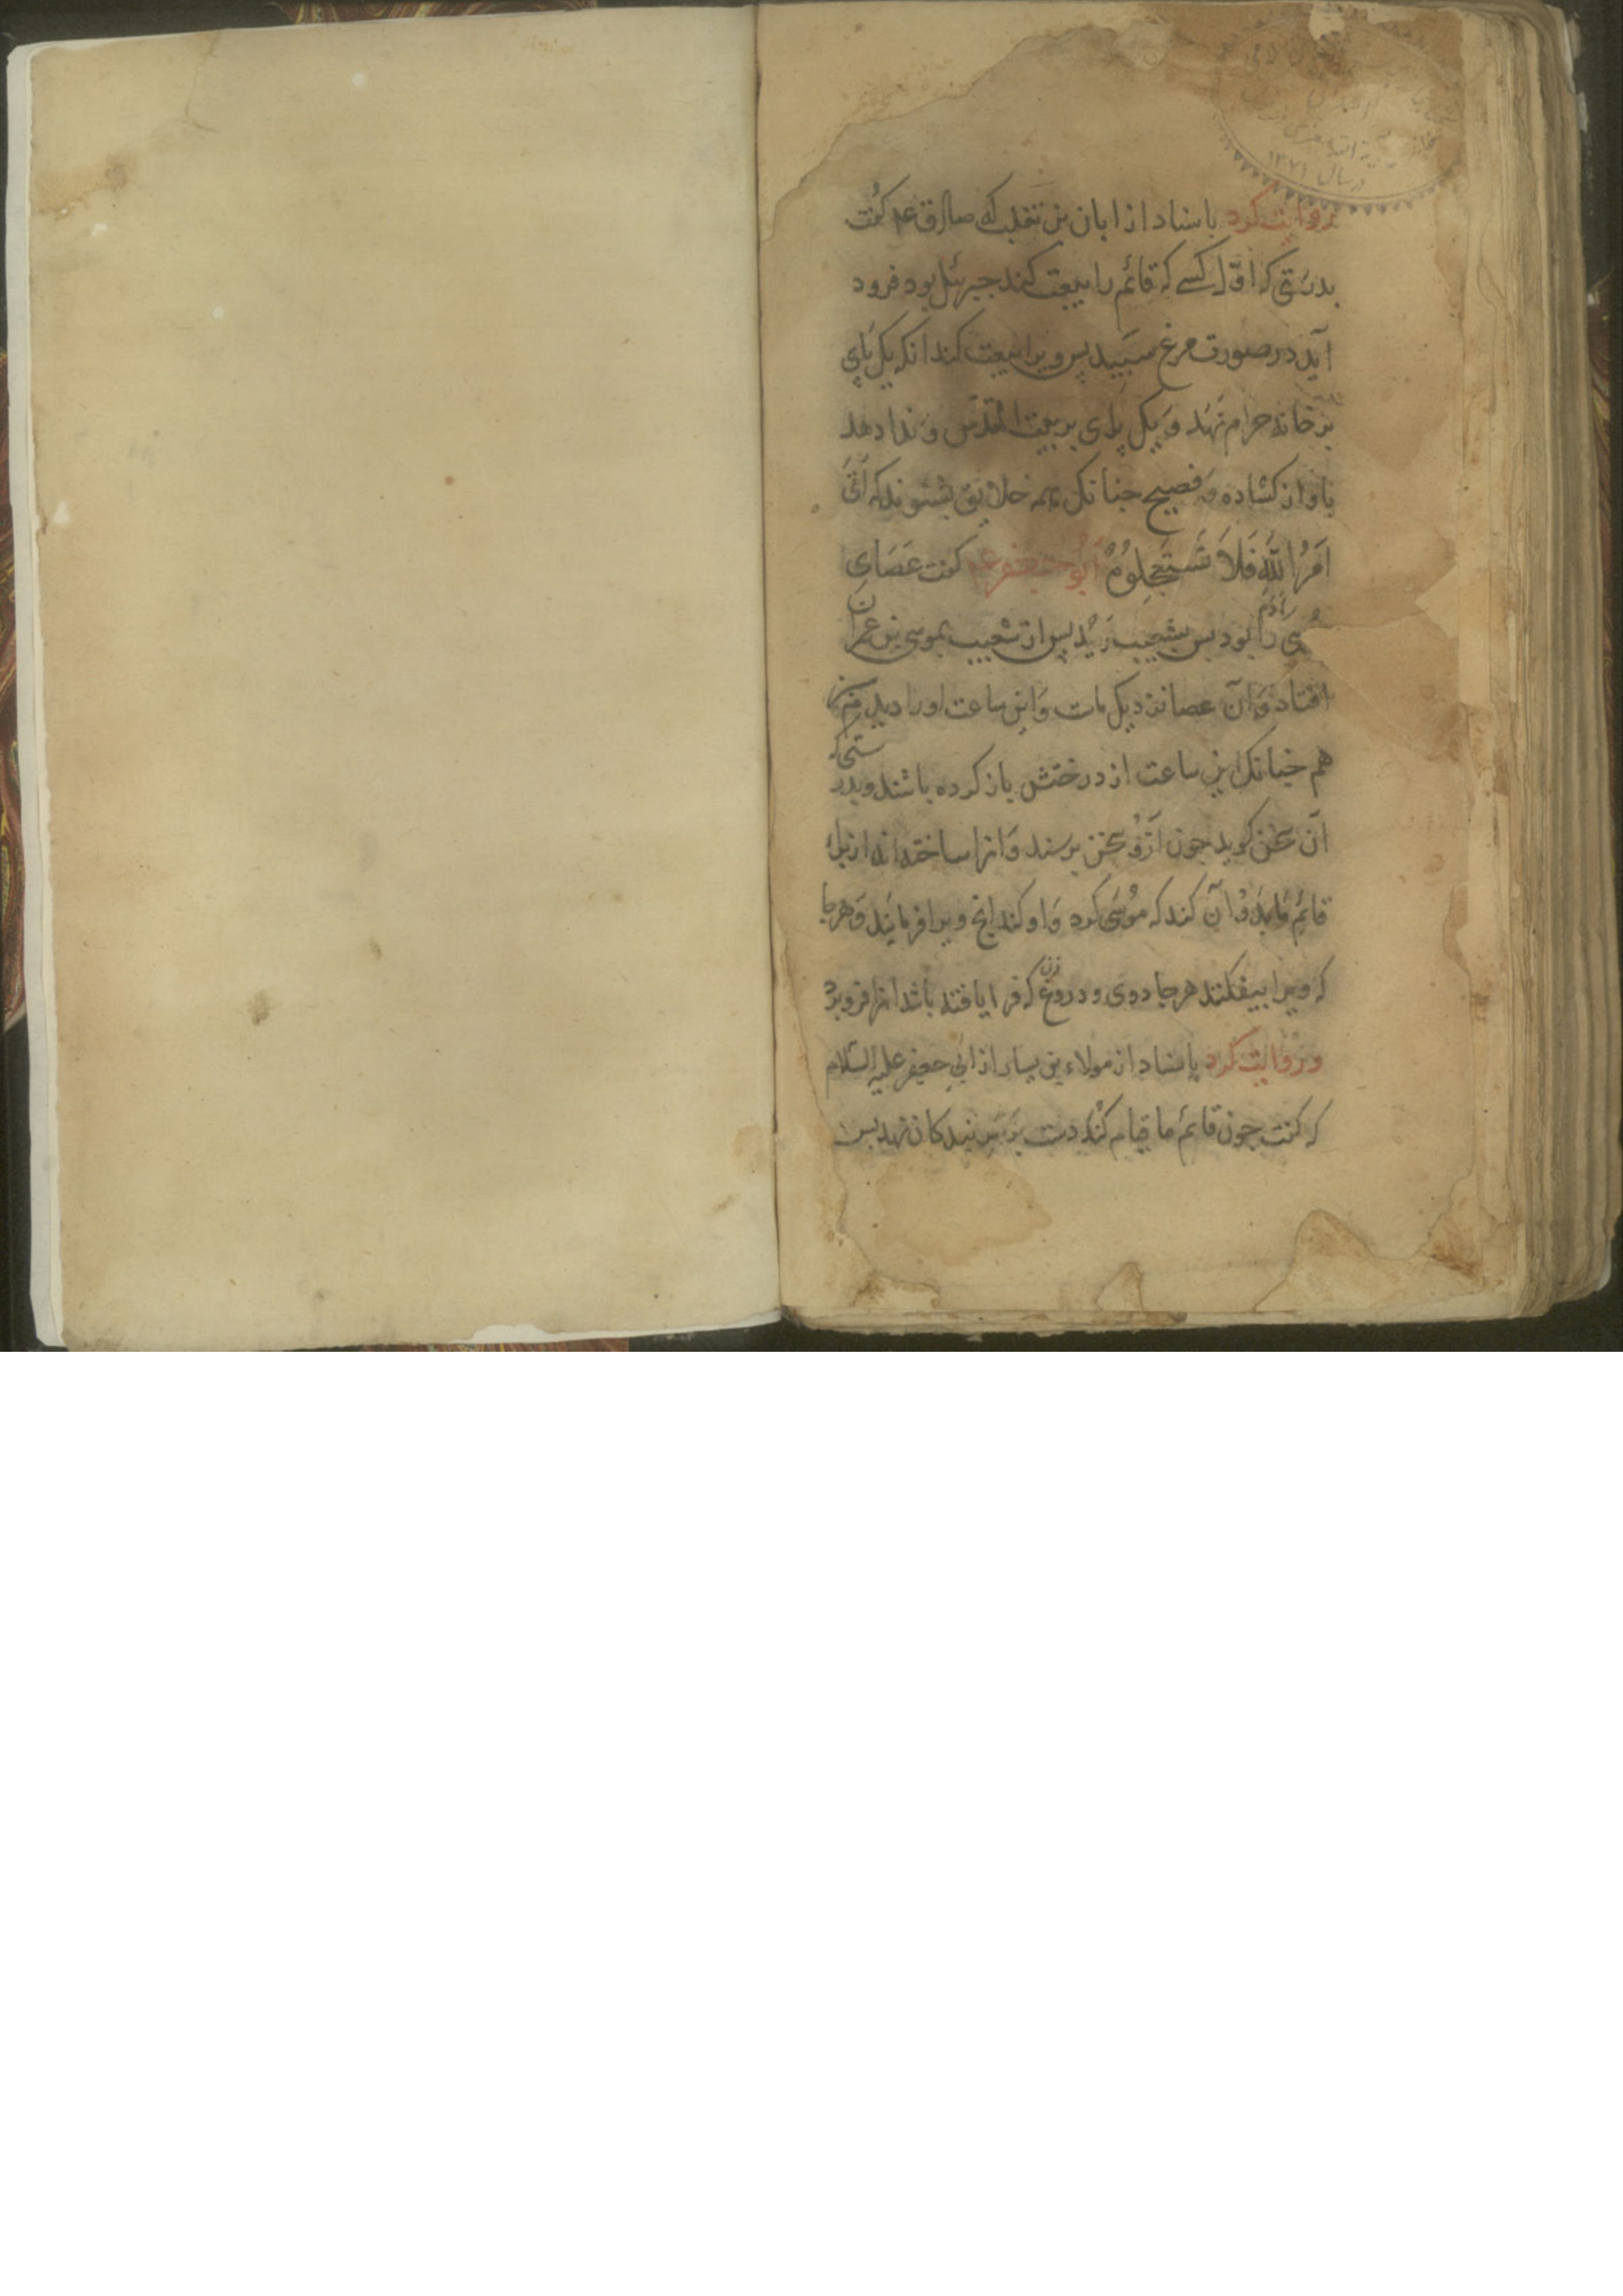 در سال ۱۳۷۱
و روایت کرد باسناد از ابان بن تغلب که صادق عم کفت
بدرستی که اوّل کسے که قائم را بیعت کند جبرئیل بود فرود
آید در صورت مرغ سبید پس ویرا بیعت کند انکه یک پای
بر خانه حرام نهد و یک پای بر بیت المقدس و ندا دهد
باواز کشاده و فصیح جنانک همه خلایق بشنوند که اَتَی
اَمرُ اللهِ فَلاَ تَستَعجِلُوهُ ابُو جعفر عم کفت عَصَایِ
را آدم را بود بس بشعیب رسید پس از شعیب بموسی بن عمران
افتاد و آن عصا نزدیک ماست و این ساعت او را دیدم
هم جنانک این ساعت از درختش باز کرده باشند و بدرستی که
آن سخن کوید جون آزو سخن برسند و انرا ساخته اند از برای
قائم ما بدو آن کند که موسی کرد و او کند انج ویرا فرمایند و هر جا
که ویرا بیفکنند هر جادوی و دروغ که فرا یافته باشد انرا فرو برد
و روایت کرد باسناد از مولاء بن یسار از ابی جعفر علیه السّلام
که کفت جون قائم ما قیام کند دست بر سر بندکان نهد بس